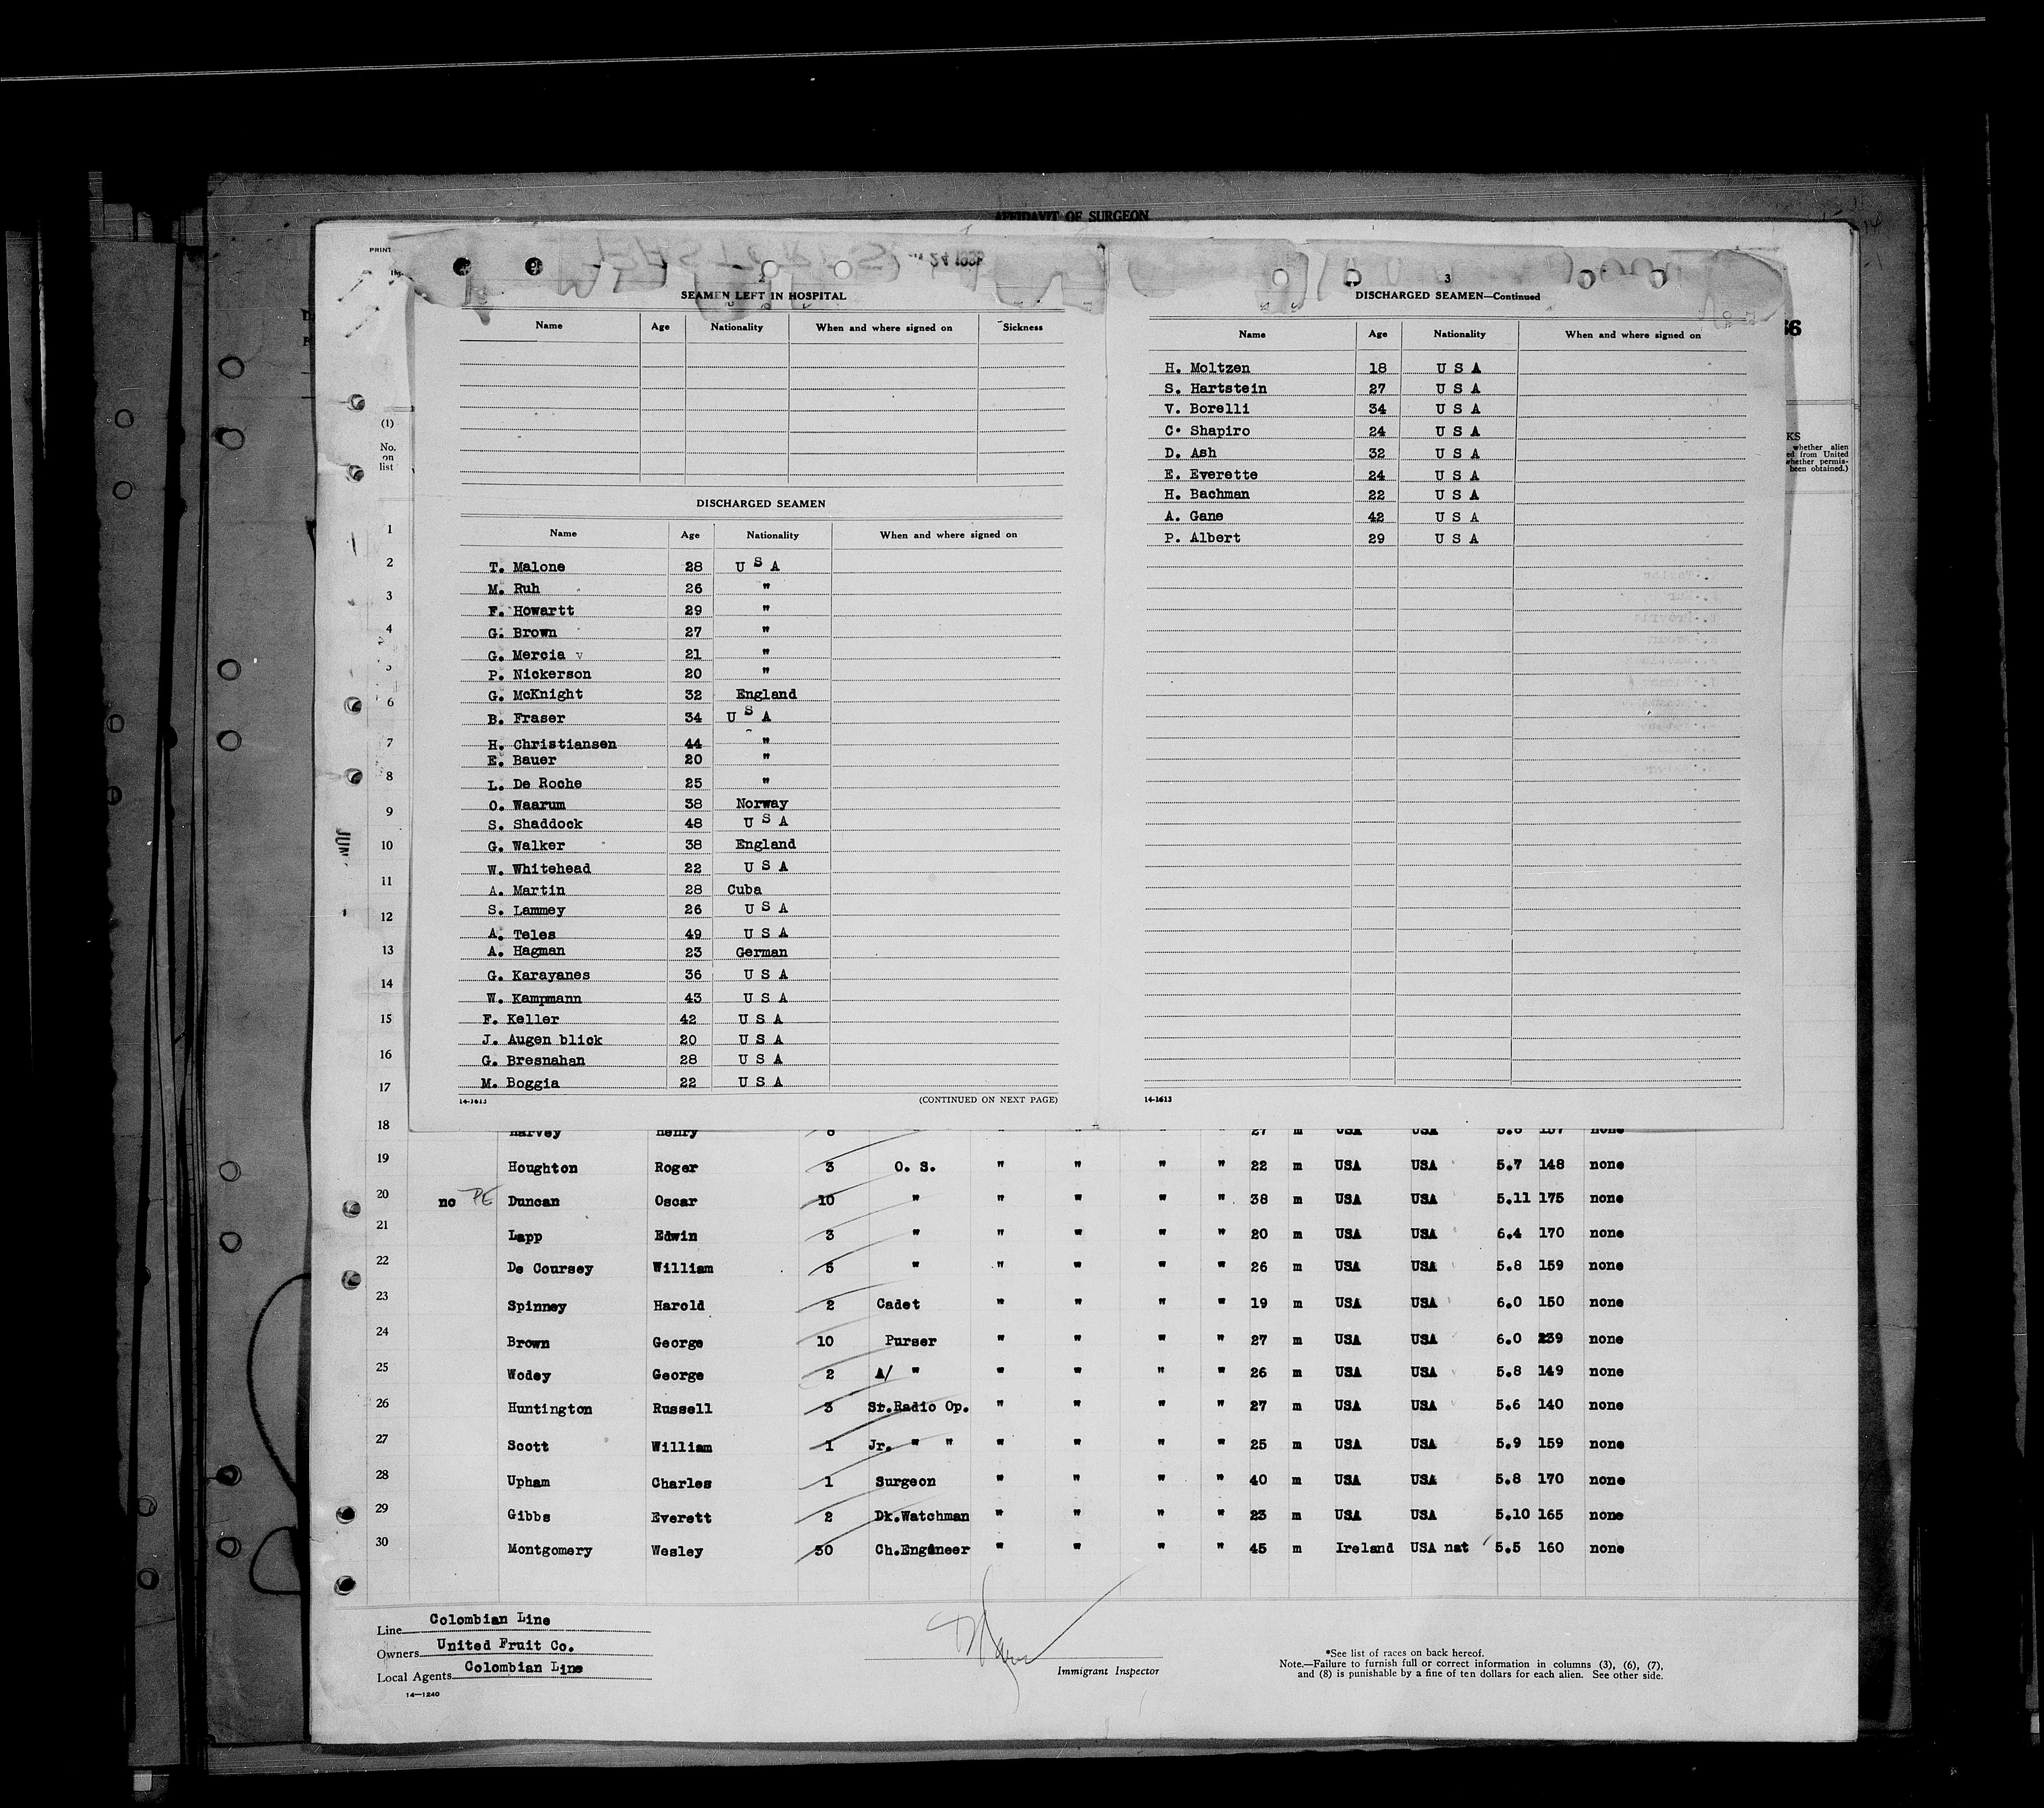 AFFIDAVIT OF SURGEON
PRINT
24 193
2
SEAMEN LEFT IN HOSPITAL
Name Age Nationality When and where signed on Sickness
DISCHARGED SEAMEN
Name Age Nationality When and where signed on
T. Malone 28 U S A
M. Ruh 26 "
F. Howartt 29 "
G. Brown 27 "
G. Mercia 21 "
P. Nickerson 20 "
G. McKnight 32 England
B. Fraser 34 U S A
H. Christiansen 44 "
E. Bauer 20 "
L. De Roche 25 "
O. Waarum 38 Norway
S. Shaddock 48 U S A
G. Walker 38 England
W. Whitehead 22 U S A
A. Martin 28 Cuba
S. Lammey 26 U S A
A. Teles 49 U S A
A. Hagman 23 German
G. Karayanes 36 U S A
W. Kampmann 43 U S A
F. Keller 42 U S A
J. Augen blick 20 U S A
G. Bresnahan 28 U S A
M. Boggia 22 U S A
14-1613 (CONTINUED ON NEXT PAGE)
3
DISCHARGED SEAMEN—Continued
Name Age Nationality When and where signed on
H. Moltzen 18 U S A
S. Hartstein 27 U S A
V. Borelli 34 U S A
C. Shapiro 24 U S A
D. Ash 32 U S A
E. Everette 24 U S A
H. Bachman 22 U S A
A. Gane 42 U S A
P. Albert 29 U S A
14-1613
66
KS
whether alien
ed from United
whether permis-
been obtained.)
(1)
No.
on
list
1
2
3
4
5
6
7
8
9
10
11
12
13
14
15
16
17
JUN
18 Harvey Henry 8 " " " " 27 m USA USA 5.8 157 none
19 Houghton Roger 3 O. S. " " " " 22 m USA USA 5.7 148 none
20 no PE Duncan Oscar 10 " " " " " 38 m USA USA 5.11 175 none
21 Lapp Edwin 3 " " " " " 20 m USA USA 6.4 170 none
22 De Coursey William 5 " " " " " 26 m USA USA 5.8 159 none
23 Spinney Harold 2 Cadet " " " " 19 m USA USA 6.0 150 none
24 Brown George 10 Purser " " " " 27 m USA USA 6.0 239 none
25 Wodey George 2 A/ " " " " " 26 m USA USA 5.8 149 none
26 Huntington Russell 3 Sr.Radio Op. " " " " 27 m USA USA 5.6 140 none
27 Scott William 1 Jr. " " " " " " 25 m USA USA 5.9 159 none
28 Upham Charles 1 Surgeon " " " " 40 m USA USA 5.8 170 none
29 Gibbs Everett 2 Dk.Watchman " " " " 23 m USA USA 5.10 165 none
30 Montgomery Wesley 30 Ch.Engineer " " " " 45 m Ireland USA nat 5.5 160 none
Line Colombian Line
Owners United Fruit Co.
Local Agents Colombian Line
14—1240
Immigrant Inspector
*See list of races on back hereof.
Note.—Failure to furnish full or correct information in columns (3), (6), (7),
and (8) is punishable by a fine of ten dollars for each alien. See other side.